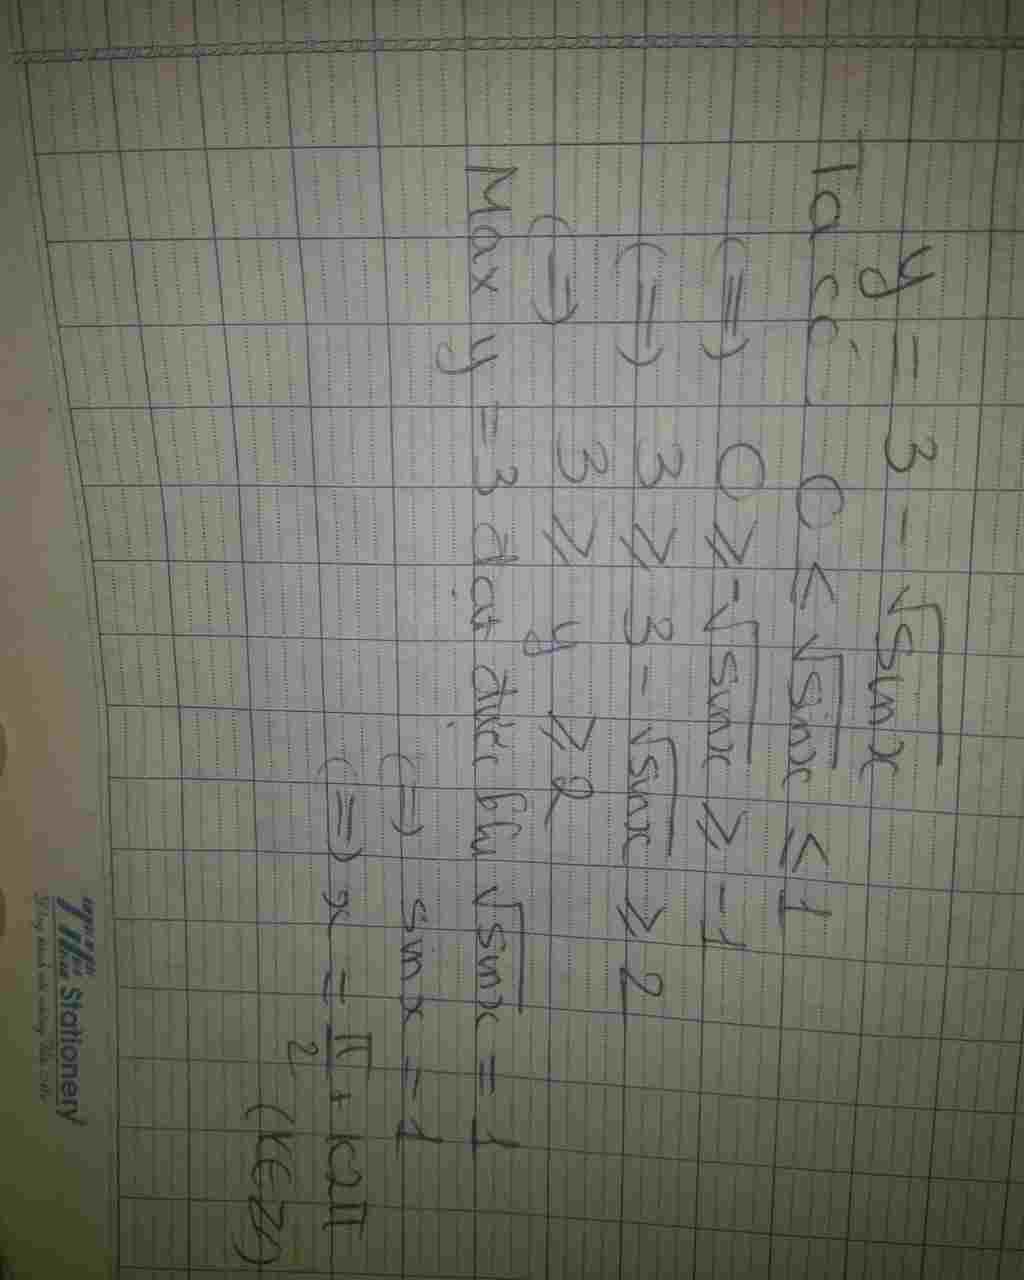 y = 3 - √sinx
Ta có: 0 ≤ √sinx ≤ 1
(=) 0 ≥ -√sinx ≥ -1
(=) 3 ≥ 3 - √sinx ≥ 2
(=) 3 ≥ y ≥ 2
Max y = 3 đạt được khi √sinx = 1
(=) sinx = 1
(=) x = π/2 + k2π
(k∈Z)
Stationery